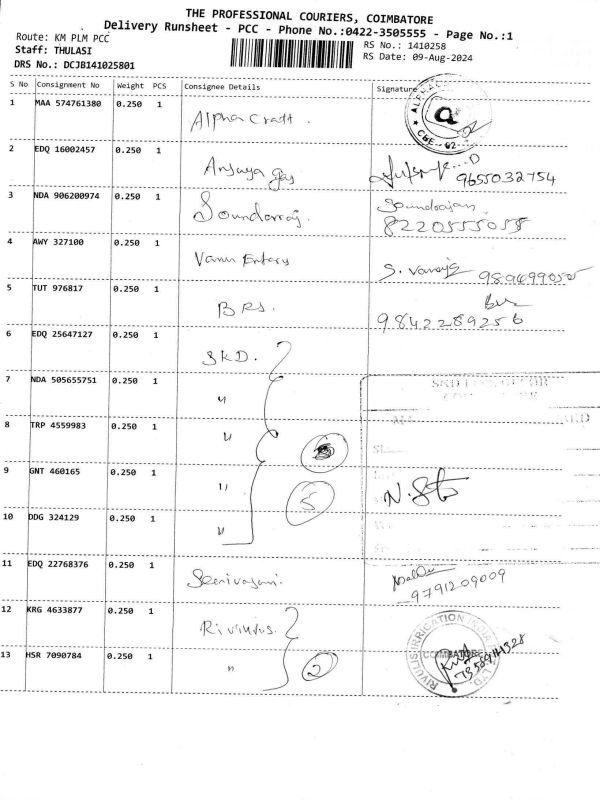 THE PROFESSIONAL COURIERS, COIMBATORE
Delivery Runsheet - PCC - Phone No.:0422-3505555 - Page No.:1
Route: KM PLM PCC
Staff: THULASI
DRS No.: DCJB141025801
RS No.: 1410258
RS Date: 09-Aug-2024
S No Consignment No Weight PCS Consignee Details Signature
1 MAA 574761380 0.250 1 Alpha Craft.
2 EDQ 16002457 0.250 1 Gas 9655032754
3 NDA 906200974 0.250 1 Soundarraj. Soundrajan
8220555058
4 AWY 327100 0.250 1 S. 9894990505
5 TUT 976817 0.250 1 BRS.
9842289256
6 EDQ 25647127 0.250 1 SKD.
7 NDA 505655751 0.250 1 "
8 TRP 4559983 0.250 1 "
9 GNT 460165 0.250 1 " 5
10 DDG 324129 0.250 1 "
11 EDQ 22768376 0.250 1 Seenivasan.
9791209009
12 KRG 4633877 0.250 1 Rivulis.
13 HSR 7090784 0.250 1 " 2
RIVULIS IRRIGATION INDIA LTD.
COIMBATORE